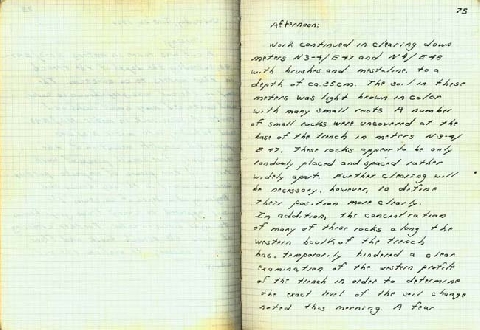 75
Afternoon:
Work continued in clearing down
meters N3-4/E47 and N4/E48
with brushes and mestolone, to a
depth of ca. 35cm. The soil in these
meters was light brown in color
with many small roots. A number
of small rocks were uncovered at the
base of the trench in meters N3-4/
E47. These rocks appear to be only
randomly placed and spaced rather
widely apart. Further clearing will
be necessary, however, to define
their position more clearly.
In addition, the concentration
of many of these rocks along the
western baulk of the trench
has, temporarily hindered a clear
examination of the western profile
of the trench in order to determine
the exact level of the soil change
noted this morning. A few